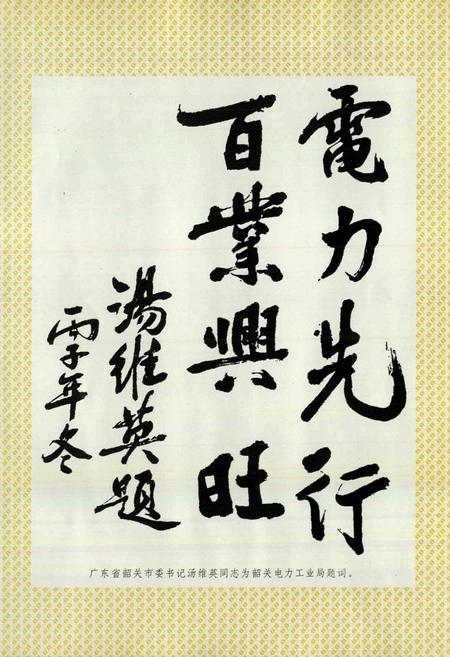 電力先行
百業興旺
湯维英题
丙子年冬
广东省韶关市委书记汤维英同志为韶关电力工业局题词。